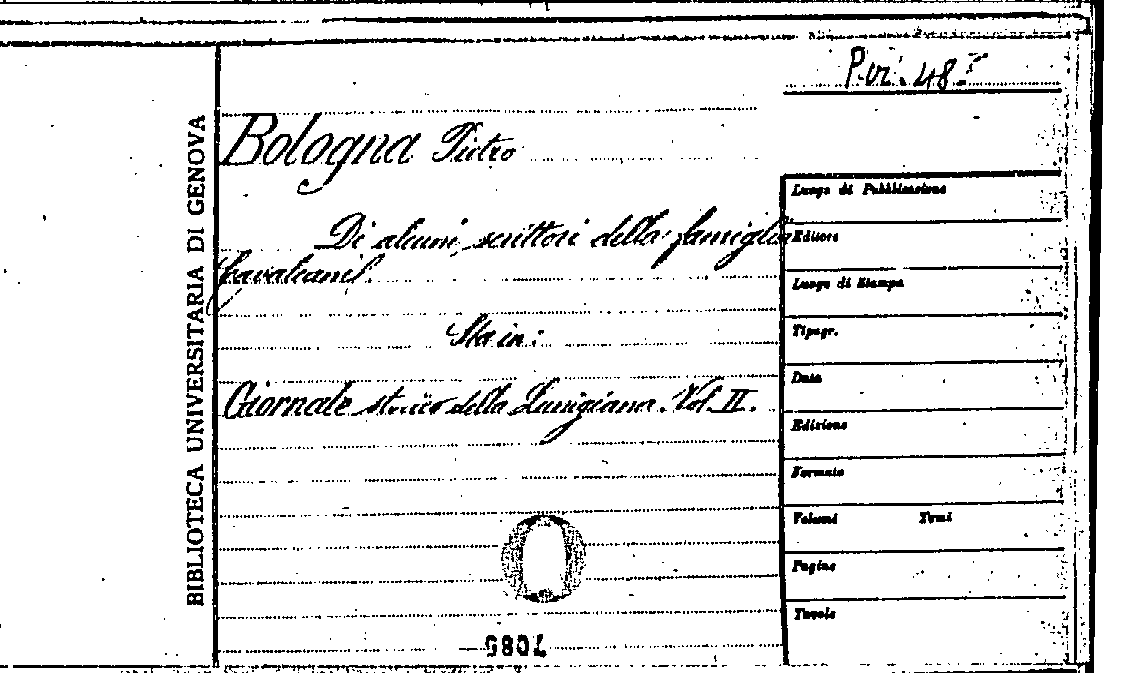 Per. 48
BIBLIOTECA UNIVERSITARIA DI GENOVA
Bologna Pietro
Di alcuni scrittori della famiglia
Cavalcanti.
Sta in:
Giornale storico della Lunigiana. Vol. II.
Luogo di Pubblicazione
Editore
Luogo di Stampa
Tipogr.
Data
Edizione
Formato
Volumi Tomi
Pagine
Tavole